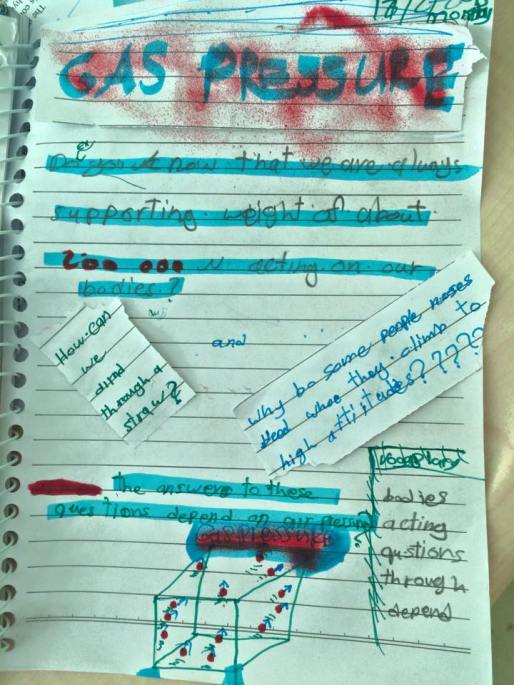 monday
GAS PRESSURE
Do you know that we are always
supporting weight of about
200 000 N acting on our
bodies?
How can
we
through a
straw?
and
Why do some people noses
when they climb to
high
The answers to these
questions depend on our pressure
Gas pressure
bodies
acting
qustions
through
depend